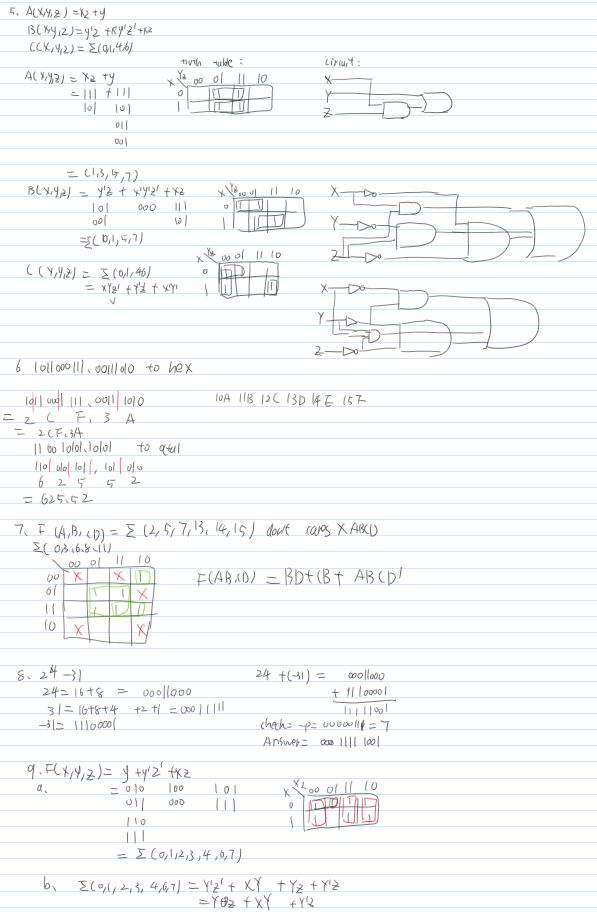 5. A(X,Y,Z) = XZ + y
B(X,y,Z) = y'z + x'y'z' + xz
C(X,Y,Z) = Σ(0,1,4,6)
truth table: circuit:
A(X,Y,Z) = XZ + y
= 111 + 111
101 101
011
001
YZ 00 01 11 10
X 0 1 1
1 1 1
X
Y
Z
= (1,3,5,7)
B(X,Y,Z) = Y'Z + X'Y'Z' + XZ
101 000 111
001 101
= Σ(0,1,5,7)
X YZ 00 01 11 10
0 1 1
1 1 1
X
Y
Z
C(X,Y,Z) = Σ(0,1,4,6)
= XYZ' + Y'Z + X'Y'
X YZ 00 01 11 10
0
1
X
Y
Z
6 1011000111.00111010 to hex
10|11 000|1 111 .0011|1010
10A 11B 12C 13D 14E 15F
= 2 C F . 3 A
= 2CF.3A
1100 10101.10101 to octal
110| 010| 101| . 101| 010
6 2 5 5 2
= 625.52
7. F(A,B,CD) = Σ(2,5,7,13,14,15) dont cares X ABCD
Σ(0,3,6,8,11)
00 01 11 10
00 X X 1
01 1 1 X
11 1 1
10 X X
F(AB,CD) = BD + CB + ABCD'
8. 24 -31
24 = 16+8 = 00011000
31 = 16+8+4 +2+1 = 00011111
-31 = 11100001
24 +(-31) = 00011000
+ 11100001
11111001
check = -p = 00000111 = 7
Answer = 000 1111 1001
9. F(X,Y,Z) = y + y'z' + xz
a. = 010 100 101
011 000 111
110
111
X YZ 00 01 11 10
0
1
= Σ(0,1,2,3,4,6,7)
b. Σ(0,1,2,3,4,6,7) = Y'Z' + XY + YZ + Y'Z
+ XY + Y'Z